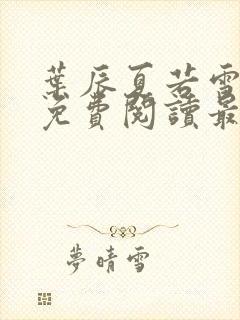 葉辰夏若雪
免費閱讀最
夢晴雪